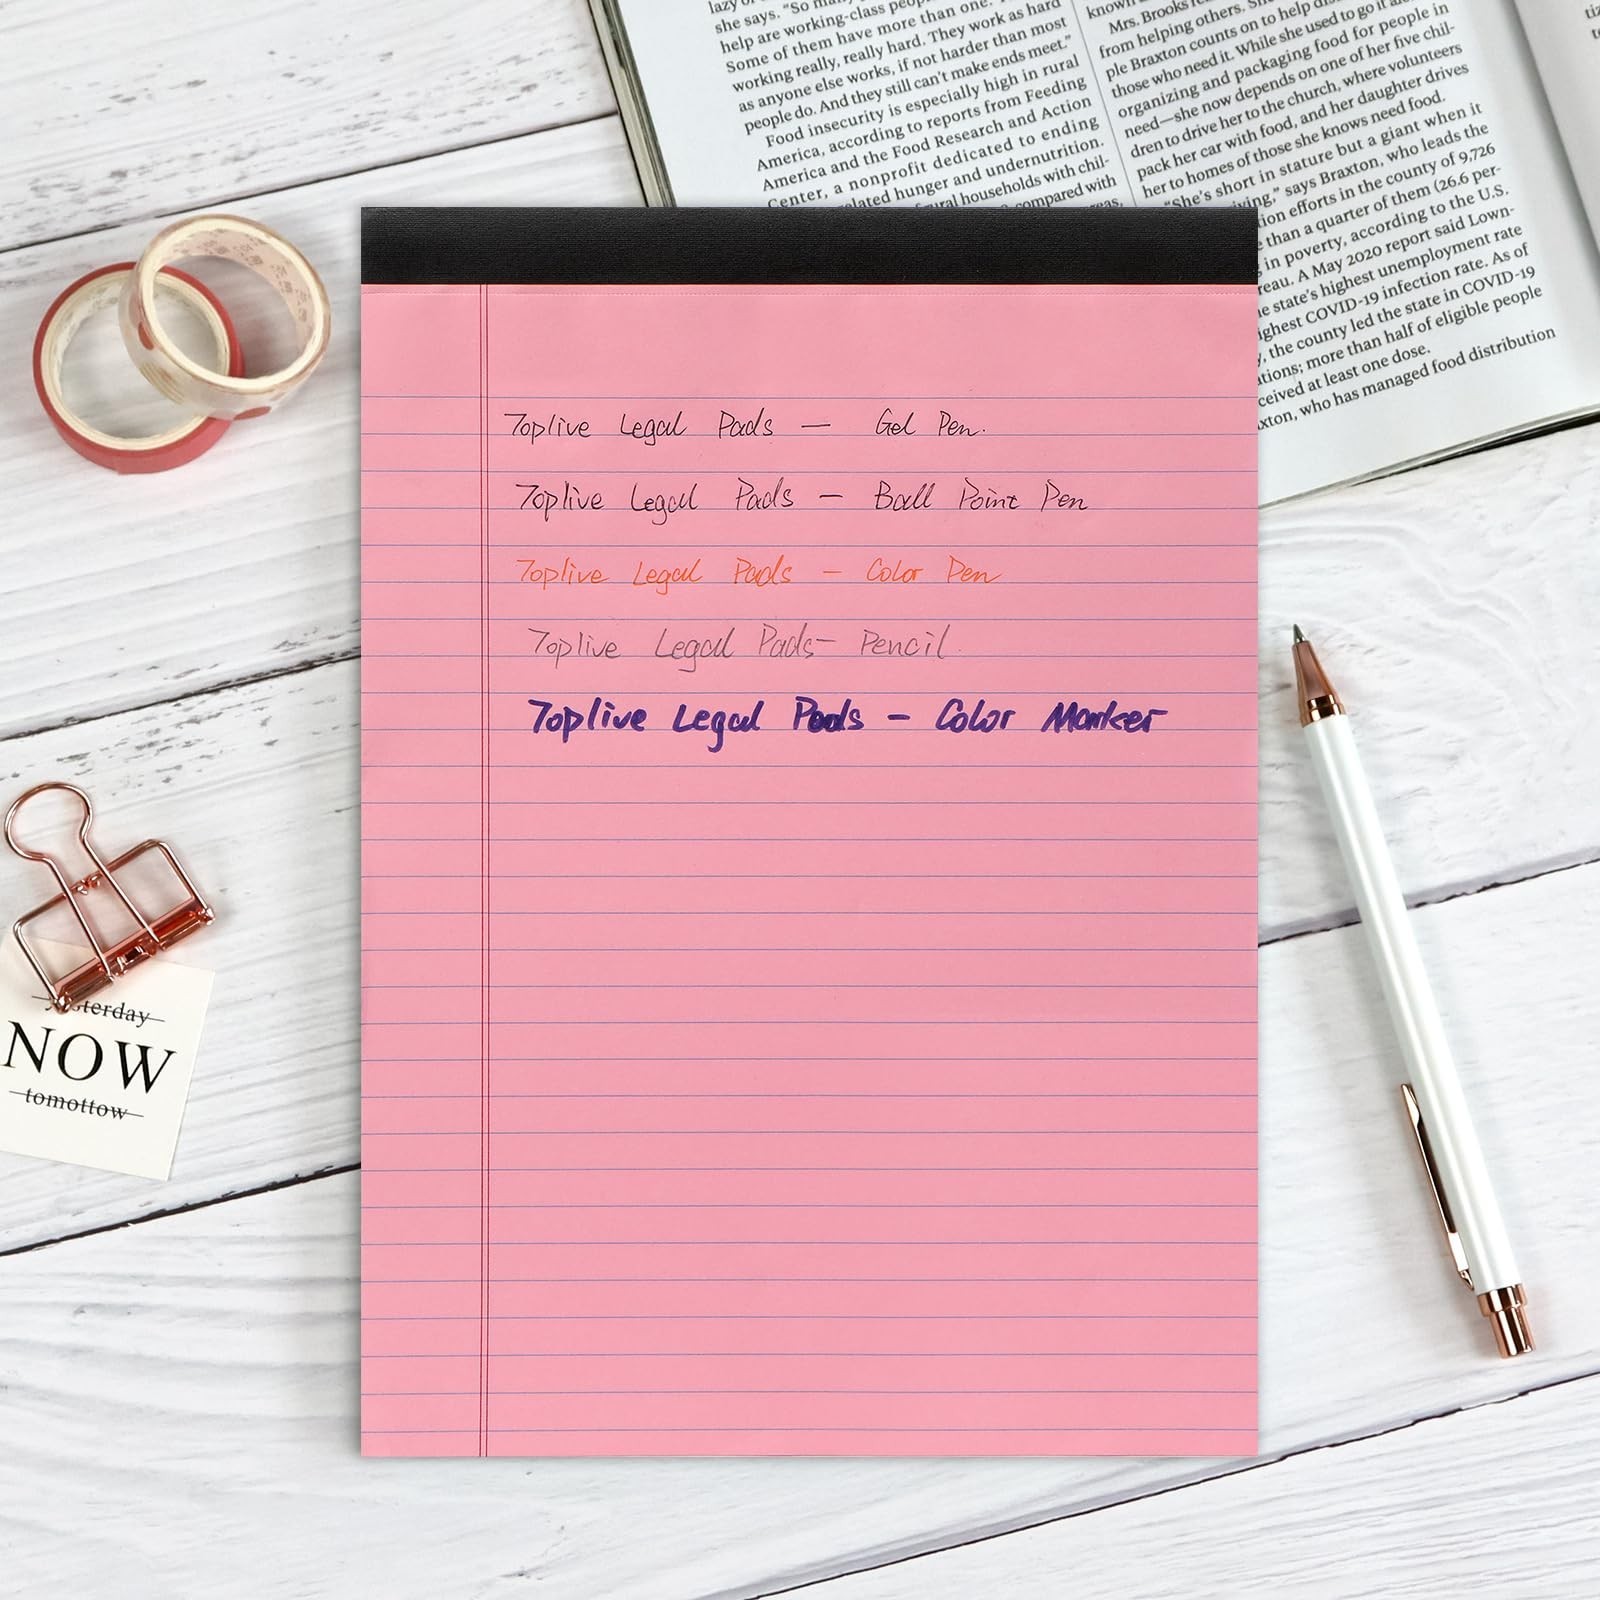 she says. "So many
help are working-class people
Some of them have more than one.
working really, really hard. They work as hard
as anyone else works, if not harder than most
people do. And they still can't make ends meet."
Food insecurity is especially high in rural
America, according to reports from Feeding
America and the Food Research and Action
Center, a nonprofit dedicated to ending
related hunger and undernutrition.
rural households with chil-
compared with
areas,
known
Mrs. Brooks
from helping others.
ple Braxton counts on to help
those who need it. While she used to go it
organizing and packaging food for people in
need—she now depends on one of her five chil-
dren to drive her to the church, where volunteers
pack her car with food, and her daughter drives
her to homes of those she knows need food.
"She's short in stature but a giant when it
says Braxton, who leads the
efforts in the county of 9,726
than a quarter of them (26.6 per-
in poverty, according to the U.S.
A May 2020 report said Lown-
state's highest unemployment rate
COVID-19 infection rate. As of
the county led the state in COVID-19
more than half of eligible people
at least one dose.
who has managed food distribution
Toplive Legal Pads — Gel Pen.
Toplive Legal Pads — Ball Point Pen
Toplive Legal Pads - Color Pen
Toplive Legal Pads - Pencil
Toplive Legal Pads - Color Marker
yesterday
NOW
tomottow